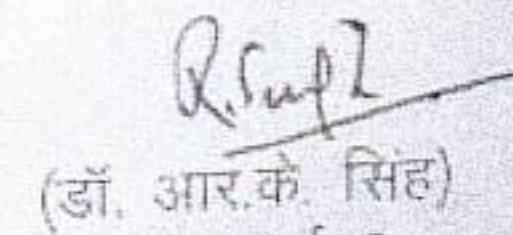 R. Singh
(डॉ. आर.के. सिंह)